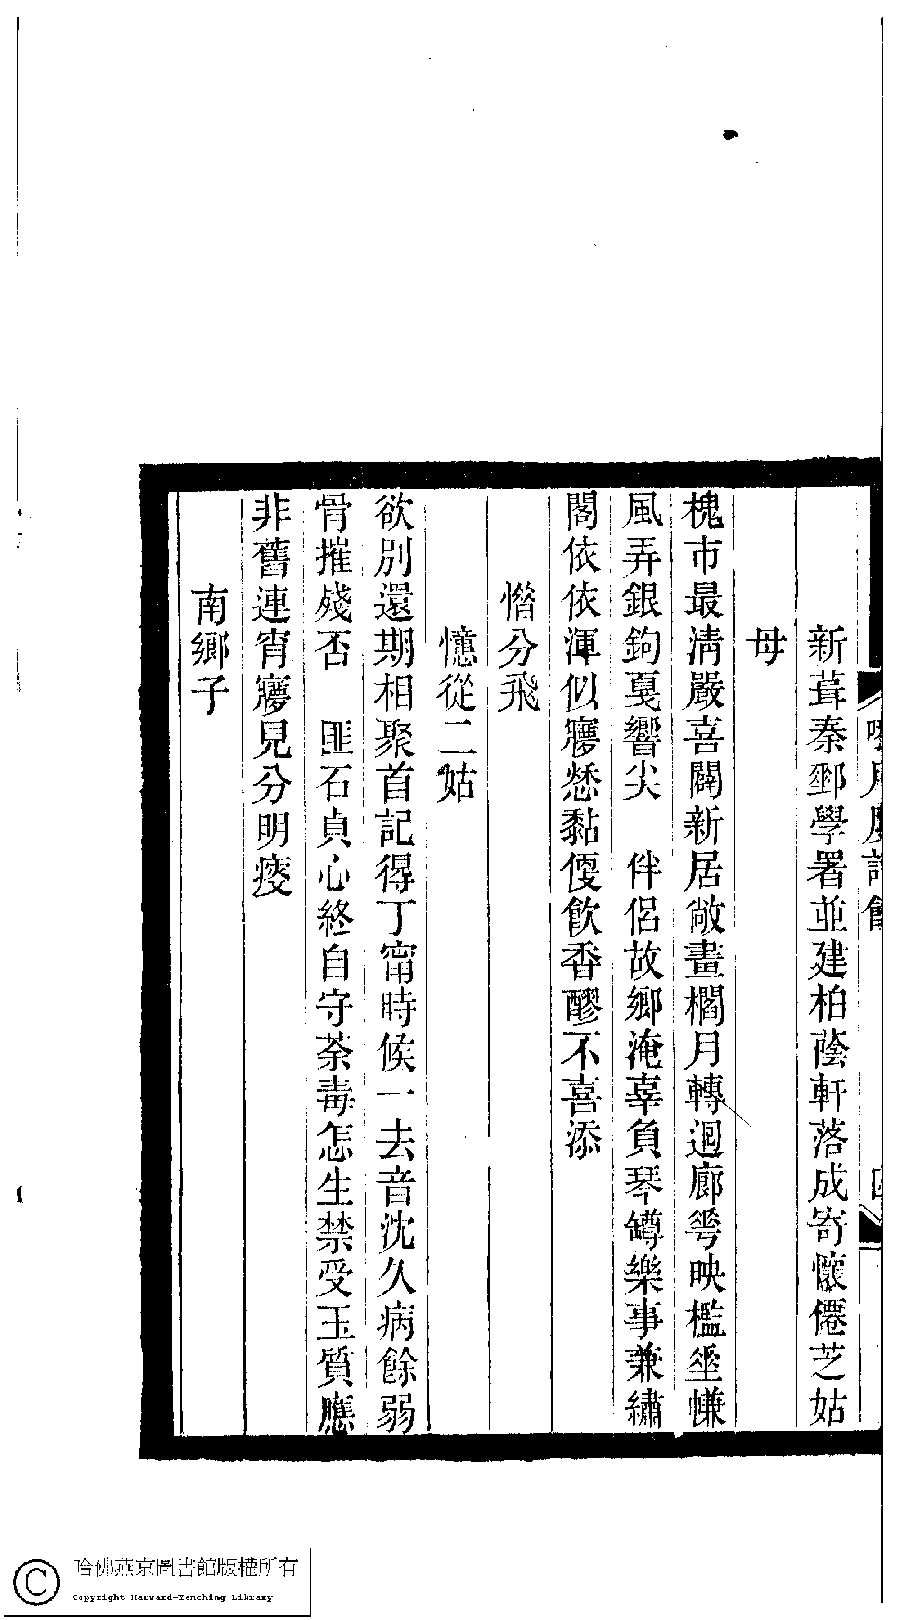 新葺秦郵學署並建柏蔭軒落成寄懷僊芝姑
母
槐市最清嚴喜闢新居敞畫櫚月轉迴廊䔢映檻垂㡘
風弄銀鉤戛響尖　伴侶故鄉淹辜負琴罇樂事兼繡
閣依依渾似㝱愁黏僾飲香醪不喜添
惜分飛
憶從二姑
欲別還期相聚首記得丁甯時候一去音沈久病餘弱
骨摧殘否　匪石貞心終自守荼毒怎生禁受玉質應
非舊連宵㝱見分明瘦
南鄉子
哈佛燕京圖書館版權所有
Copyright Harvard-Yenching Library